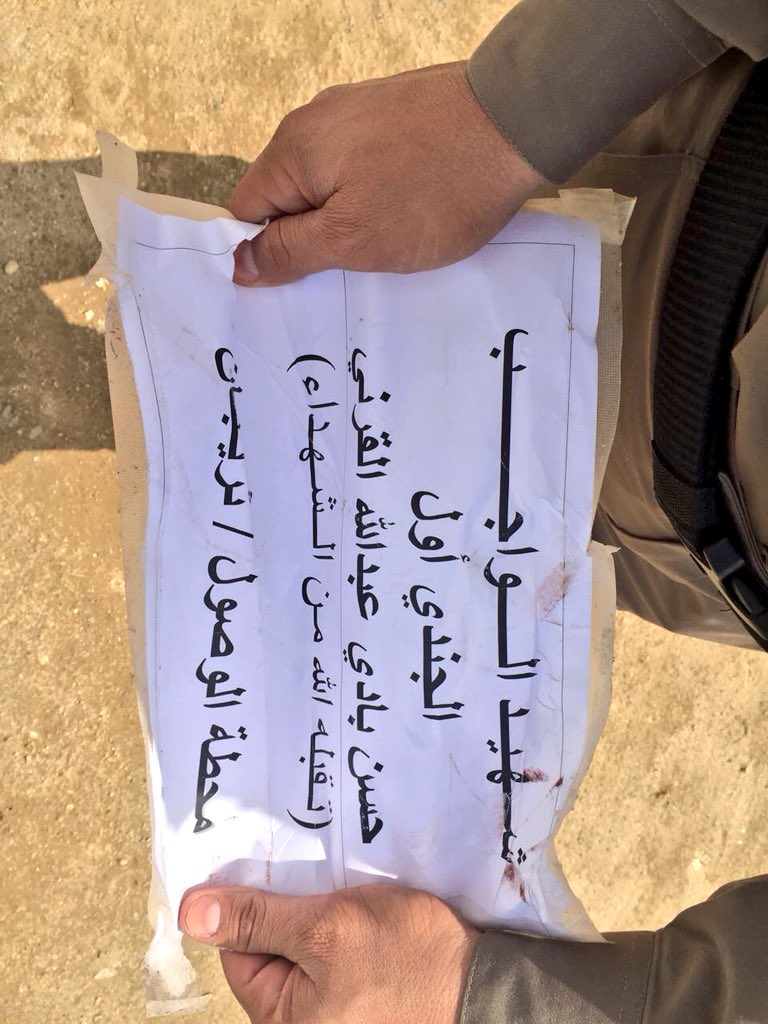 شهيد الواجب
الجندي أول
حسن بادي عبدالله القرني
(تقبله الله من الشهداء)
محطة الوصول / تريبت